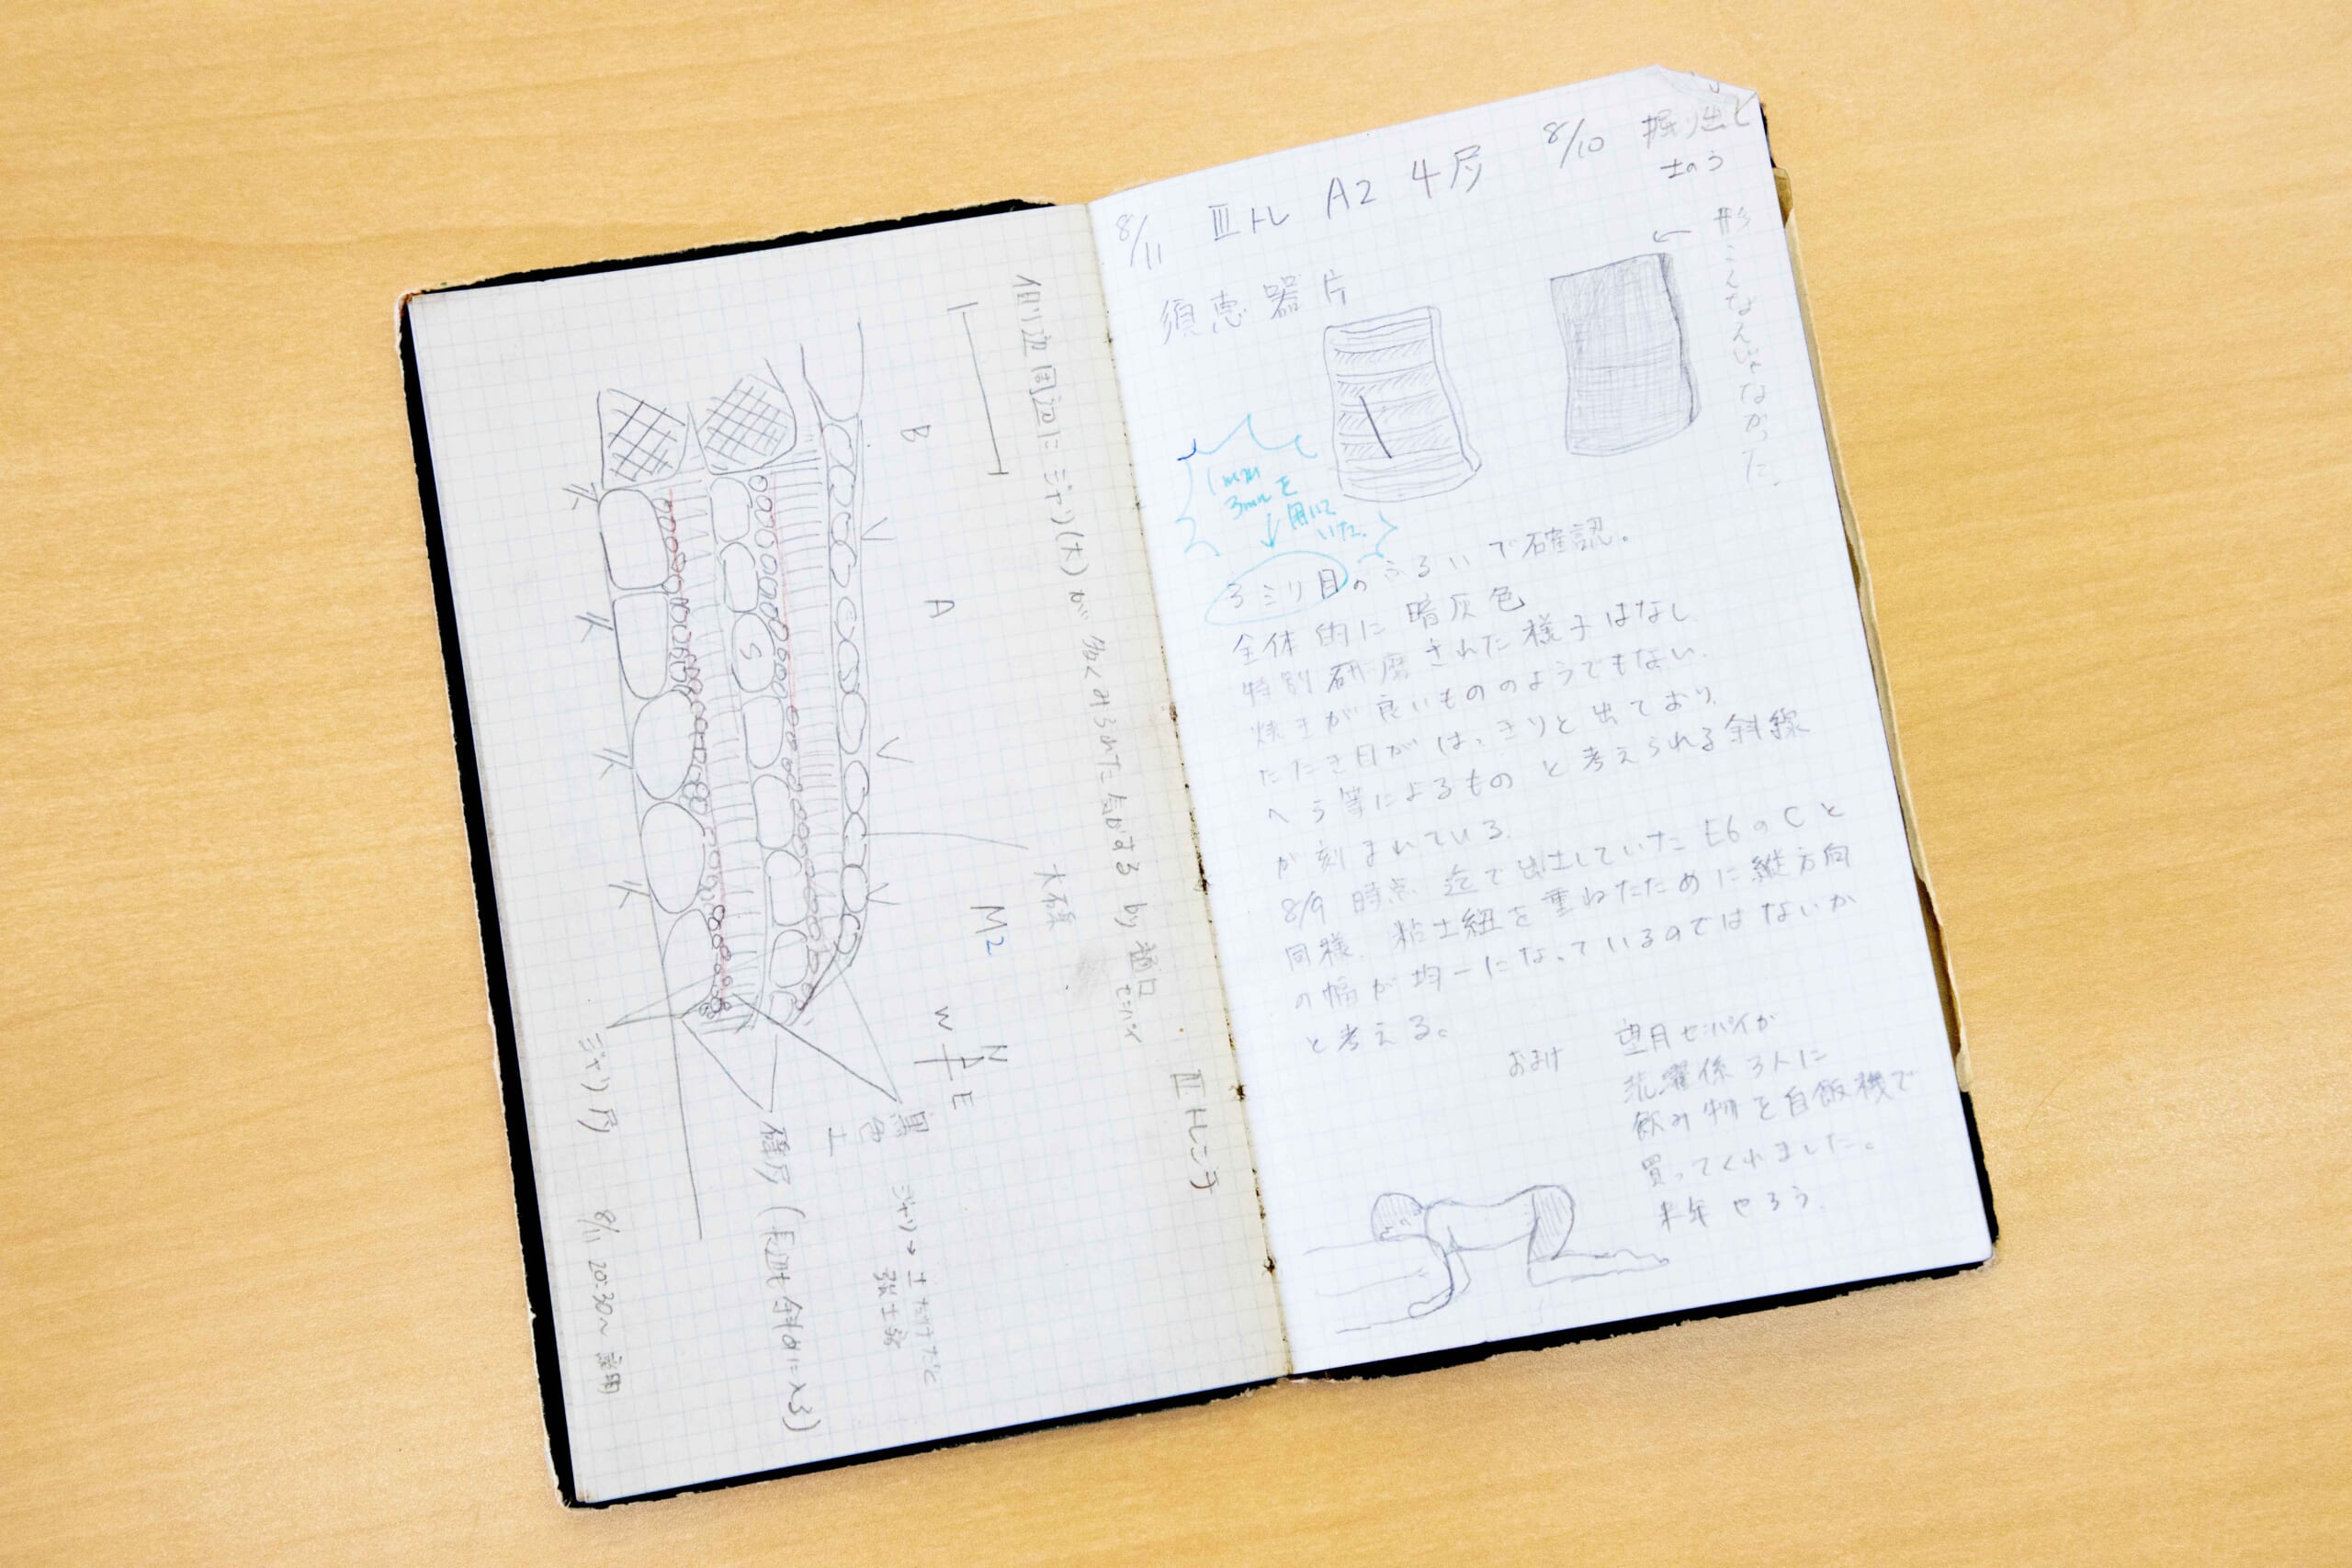 側辺周辺にジャリ(大)が多くみられた気がする by 樋口
センパイ
B
A
大石積
M2
N
W E
Ⅲトレンチ
黒色土
S
ジャリ→土
ジャリ層
8/11 20:30~
8/11 Ⅲトレ A2 4層 8/10 掘り出し
土のう
須恵器片
形こんなんじゃなかった。
1mm
3mmを
用いて
いた。
3ミリ目のふるいで確認。
全体的に暗灰色
特別研磨された様子はなし
焼きが良いもののようでもない。
たたき目がはっきりと出ており、
へら等によるものと考えられる斜線
が刻まれている。
8/9 時点迄で出土していたE6のCと
同様、粘土紐を重ねたために縦方向
の幅が均一になっているのではないか
と考える。
おまけ
望月センパイが
洗濯係3人に
飲み物を自飯機で
買ってくれました。
来年やろう。